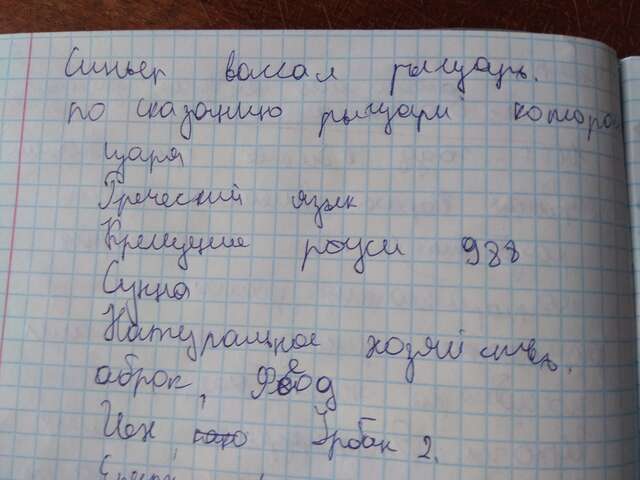 Синьер вассал рыцарь.
по сказанию рыцари котора
царя
Греческий язык
Крещение роуси 988
Сунна
Натуральное хозяйство.
аброк,
Урбан 2.